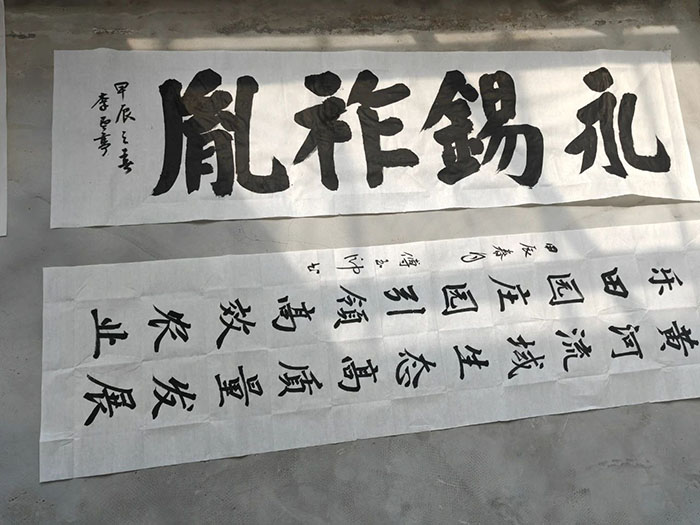 永錫祚胤
甲辰之春
黄河流域生态高质量发展
乐田园庄园引領高效农业
甲辰春月